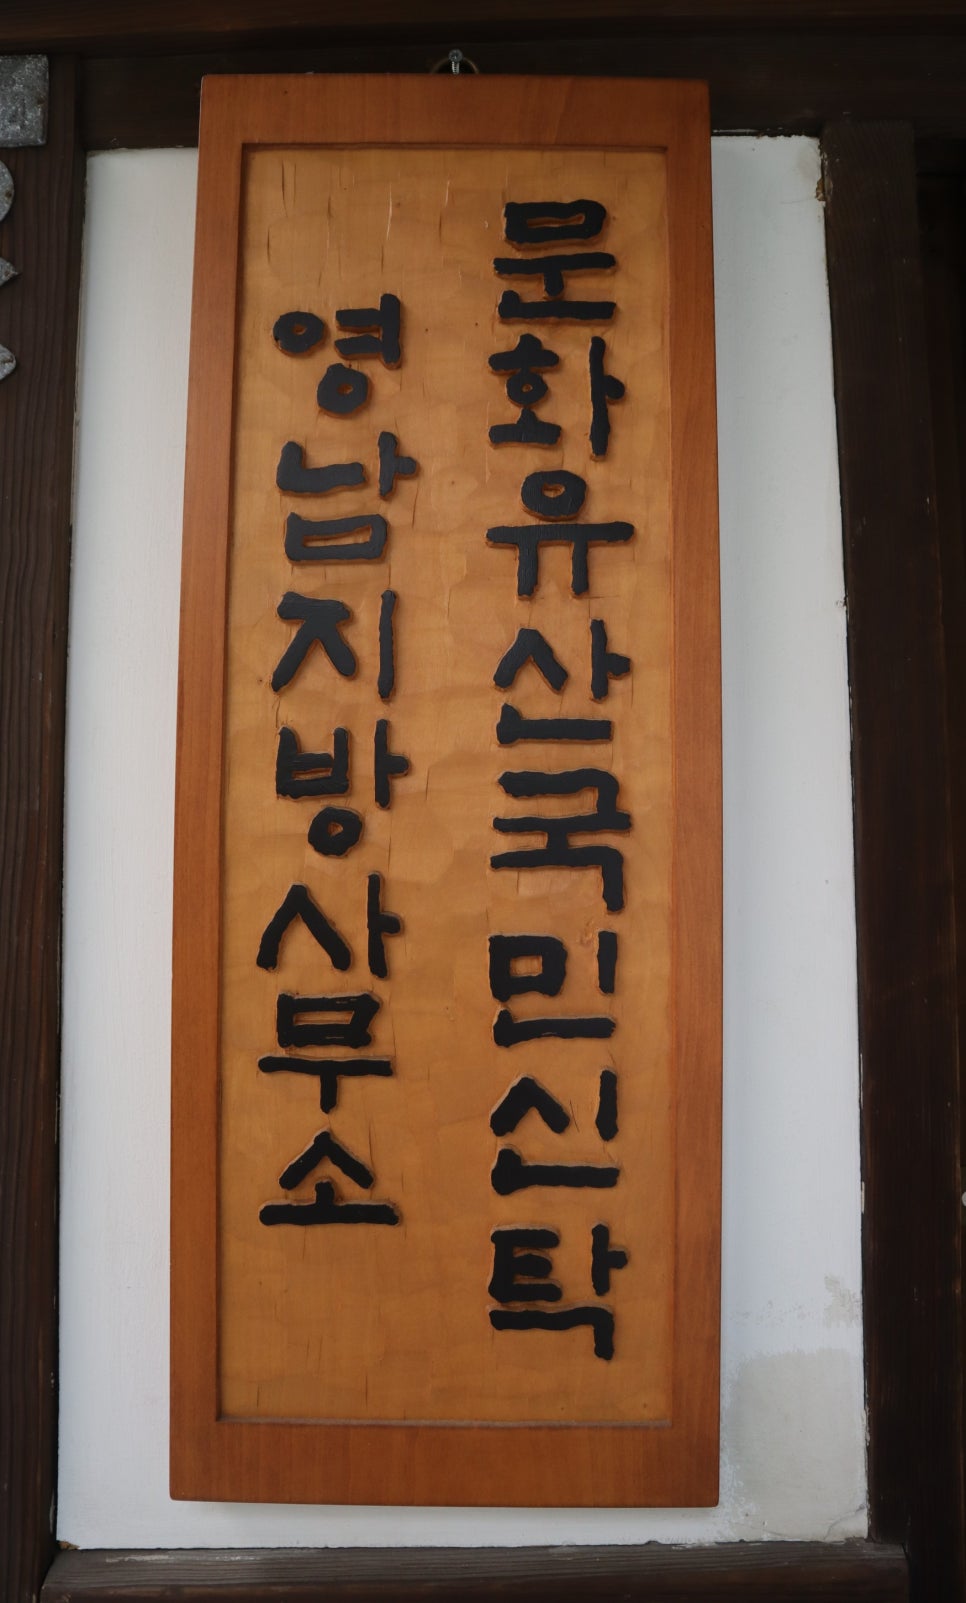 문화유산국민신탁
영남지방사무소